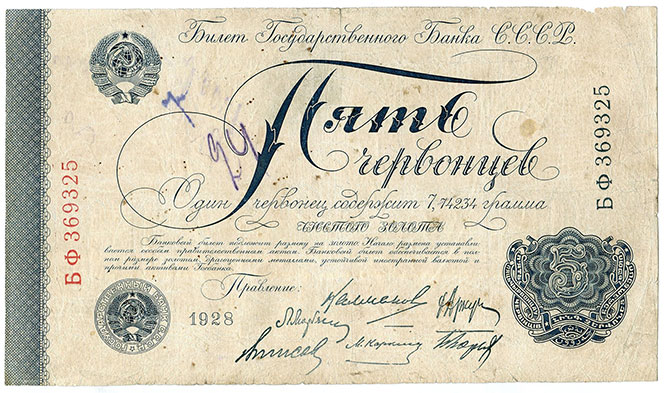 Билет Государственного Банка С.С.С.Р.
Пять
червонцев
Один червонец содержит 7,74234 грамма
чистого золота
Банковый билет подлежит размену на золото. Начало размена устанавли-
вается особым правительственным актом. Банковый билет обеспечивается в пол-
ном размере золотом, драгоценными металлами, устойчивой иностранной валютой и
прочими активами Госбанка.
Правление:
1928
БФ 369325
БФ 369325
5